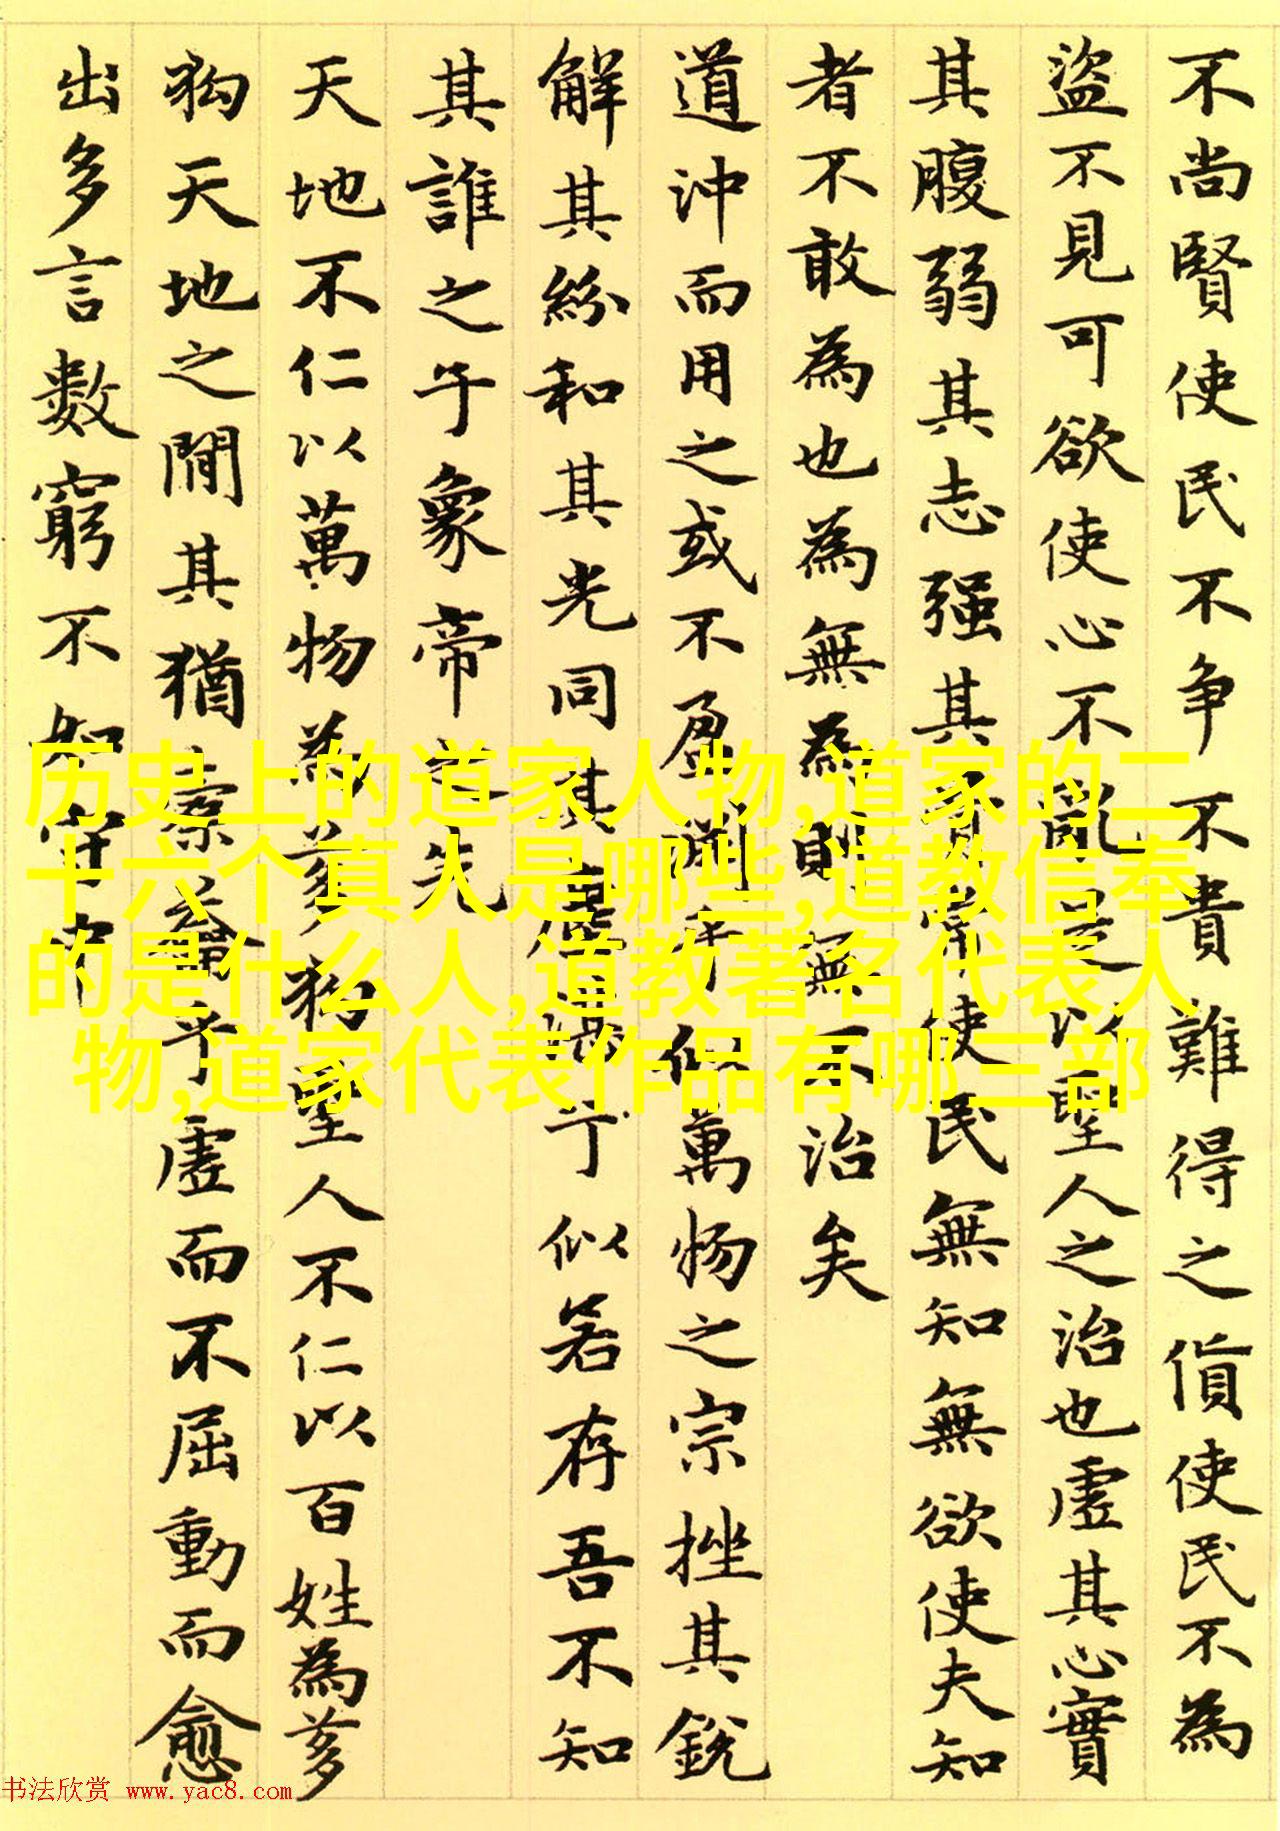 不尚賢使民不争不貴難得之貨使民不為
盜不見可欲使心不亂是以聖人之治也虛其心實
其腹弱其志强其骨常使民無知無欲使夫知
者不敢為也為無為則無不治矣
道沖而用之或不盈淵乎似萬物之宗挫其銳
解其紛和其光同其塵湛乎似若存吾不知
其誰之子象帝之先
天地不仁以萬物為芻狗聖人不仁以百姓為芻
狗天地之間其猶橐籥乎虛而不屈動而愈
出多言數窮不如守中
历史上的道家人物,道家的二
十六个真人是哪些,道教信奉
的是什么人,道教著名代表人
物,道家代表作品有哪三部
书法欣赏 www.yac8.com